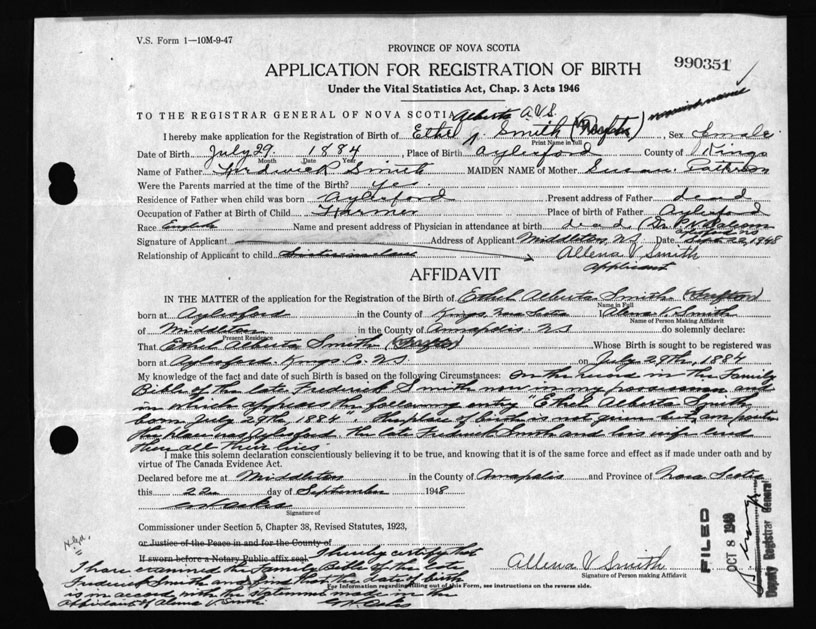 V.S. Form 1—10M-9-47
PROVINCE OF NOVA SCOTIA
990351
APPLICATION FOR REGISTRATION OF BIRTH
Under the Vital Statistics Act, Chap. 3 Acts 1946
TO THE REGISTRAR GENERAL OF NOVA SCOTIA Alberta A.V.S. married name
I hereby make application for the Registration of Birth of Ethel Smith, Sex female
Print Name in Full
Date of Birth July 29 1884, Place of Birth Aylesford County of Kings
Month Date Year
Name of Father Fredrick Smith MAIDEN NAME of Mother Susan
Were the Parents married at the time of the Birth? yes
Residence of Father when child was born Aylesford Present address of Father dead
Occupation of Father at Birth of Child Farmer Place of birth of Father Aylesford
Race English Name and present address of Physician in attendance at birth dead (Dr.
Signature of Applicant Address of Applicant Middleton, N.S. Date Sept. 22, 1948
Relationship of Applicant to child Sister in law Allena V Smith
applicant
AFFIDAVIT
IN THE MATTER of the application for the Registration of the Birth of Ethel Alberta Smith
Name in Full
born at Aylesford in the County of Kings, Nova Scotia I Alena V. Smith
Name of Person Making Affidavit
of Middleton in the County of Annapolis N.S do solemnly declare:
Present Residence
That Ethel Alberta Smith Whose Birth is sought to be registered was
born at Aylesford. Kings Co. N.S. on July 29th, 1884
My knowledge of the fact and date of such Birth is based on the following Circumstances: On the record in the Family
Bible of the late Frederick Smith now in my possession and
in which appears the following entry "Ethel Alberta Smith
born July 29th 1884". The place of birth is not given but I am positive
the place was Aylesford. The late Fredrick Smith and his wife lived
there all their lives.
I make this solemn declaration conscientiously believing it to be true, and knowing that it is of the same force and effect as if made under oath and by
virtue of The Canada Evidence Act.
Declared before me at Middleton in the County of Annapolis and Province of Nova Scotia
this 22 day of September 1948
Signature of
Commissioner under Section 5, Chapter 38, Revised Statutes, 1923,
or Justice of the Peace in and for the County of
If sworn before a Notary Public affix seal. I hereby certify that
I have examined the Family Bible of the late
Allena V Smith
Signature of Person making Affidavit
Frederick Smith and find that the date of birth
For information regarding filling out of this Form, see instructions on the reverse side.
is in accord with the statement made in the
affidavit of Alena V. Smith
FILED
OCT 8 1948
Deputy Registrar General